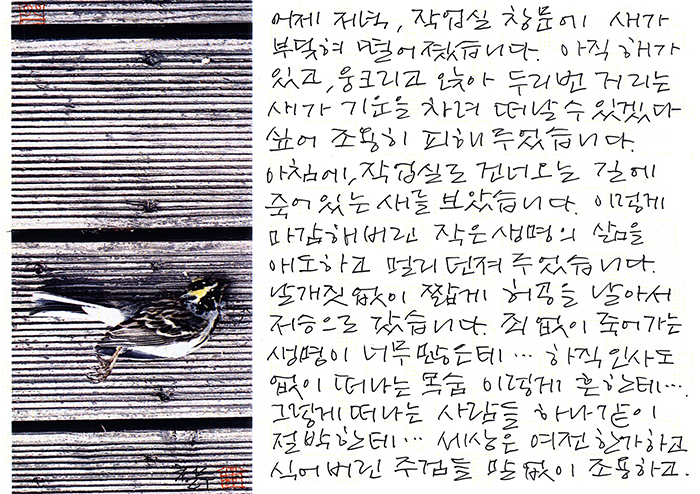 어제 저녁, 작업실 창문에 새가
부딪혀 떨어졌습니다. 아직 해가
있고, 웅크리고 앉아 두리번 거리는
새가 기운을 차려 떠날 수 있겠다
싶어 조용히 피해 주었습니다.
아침에, 작업실로 건너오는 길에
죽어있는 새를 보았습니다. 이렇게
마감해버린 작은 생명의 삶을
애도하고 멀리 던져 주었습니다.
날개짓 없이 짧게 허공을 날아서
저승으로 갔습니다. 죄 없이 죽어가는
생명이 너무 많은데… 하직 인사도
없이 떠나는 목숨 이렇게 흔한데….
그렇게 떠나는 사람들 하나같이
절박한데… 세상은 여전 한가하고
식어버린 주검들 말 없이 조용하고.